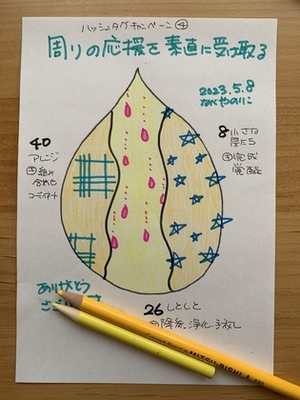 ハッシュタグキャンペーン④
周りの応援を素直に受取る
2023.5.8
ながやのりこ
40
アレンジ
組み
合わせ
コーディネート
8 小さな
星たち
完成
覚醒
ありがとう
26 しとしと
降参、浄化、手放し
MITSUBISHI